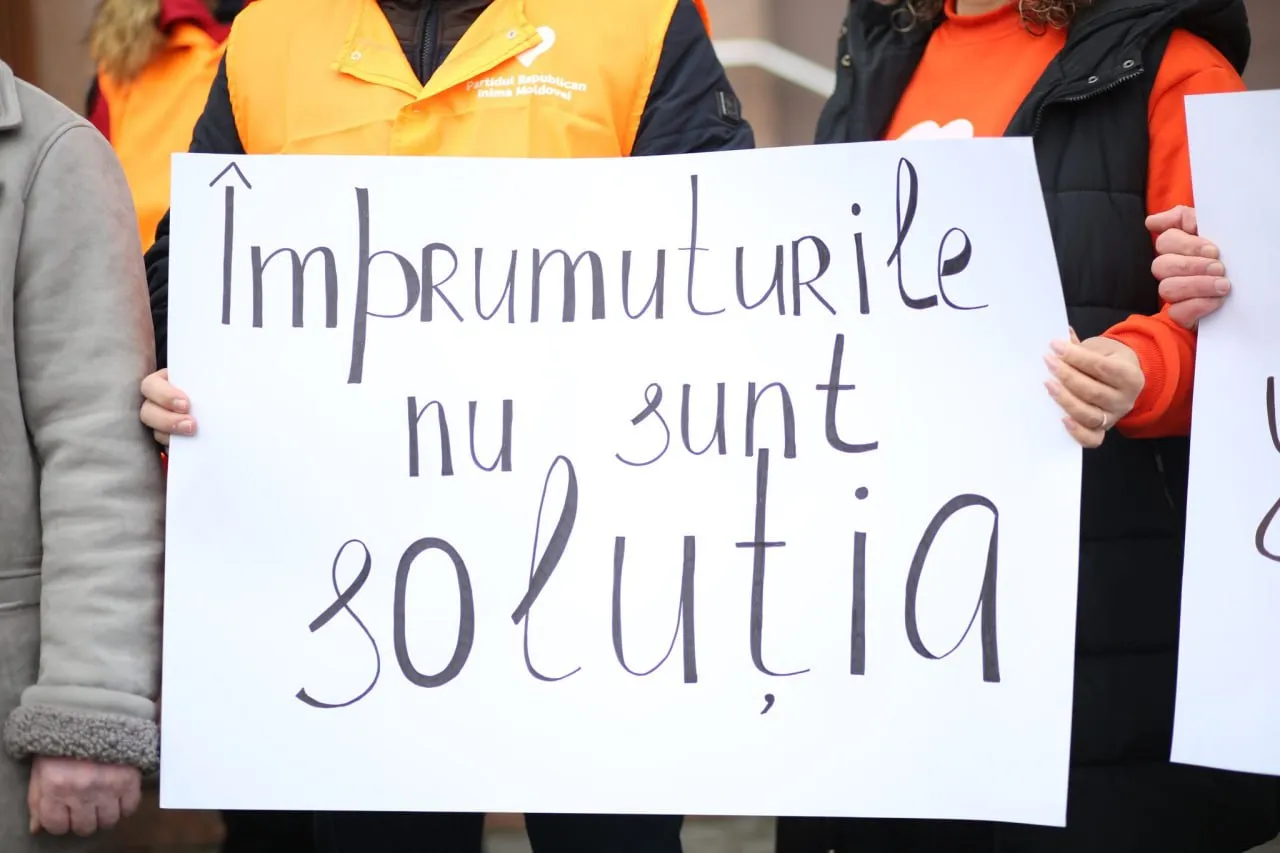 Partidul Republican
Inima Moldovei
Împrumuturile
nu sunt
soluția